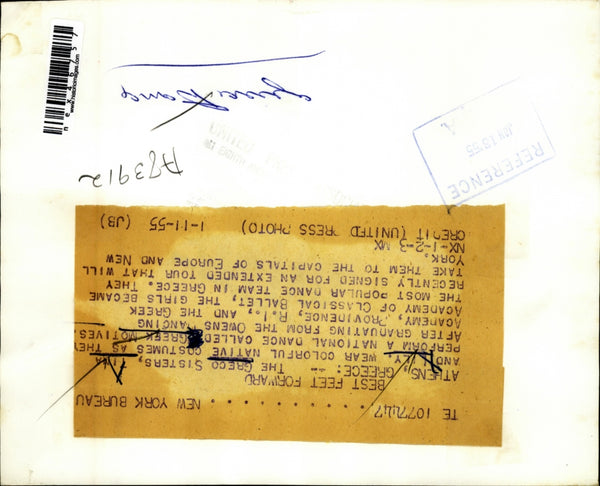 TE 1077447 . . . . . . . . . . NEW YORK BUREAU
BEST FEET FORWARD
ATHENS, GREECE: -- THE GRECO SISTERS,
AND WEAR COLORFUL NATIVE COSTUMES AS THEY
PERFORM A NATIONAL DANCE CALLED GREEK MOTIVES.
AFTER GRADUATING FROM THE OWENS DANCING
ACADEMY, PROVIDENCE, R.I., AND THE GREEK
ACADEMY OF CLASSICAL BALLET, THE GIRLS BECAME
THE MOST POPULAR DANCE TEAM IN GREECE. THEY
RECENTLY SIGNED FOR AN EXTENDED TOUR THAT WILL
TAKE THEM TO THE CAPITALS OF EUROPE AND NEW
YORK.
NX-1-2-3 MX
CREDIT (UNITED PRESS PHOTO) 1-11-55 (JB)
A73912
REFERENCE
JAN 18 '55
A
UNITED
nex46757
www.historicimages.com